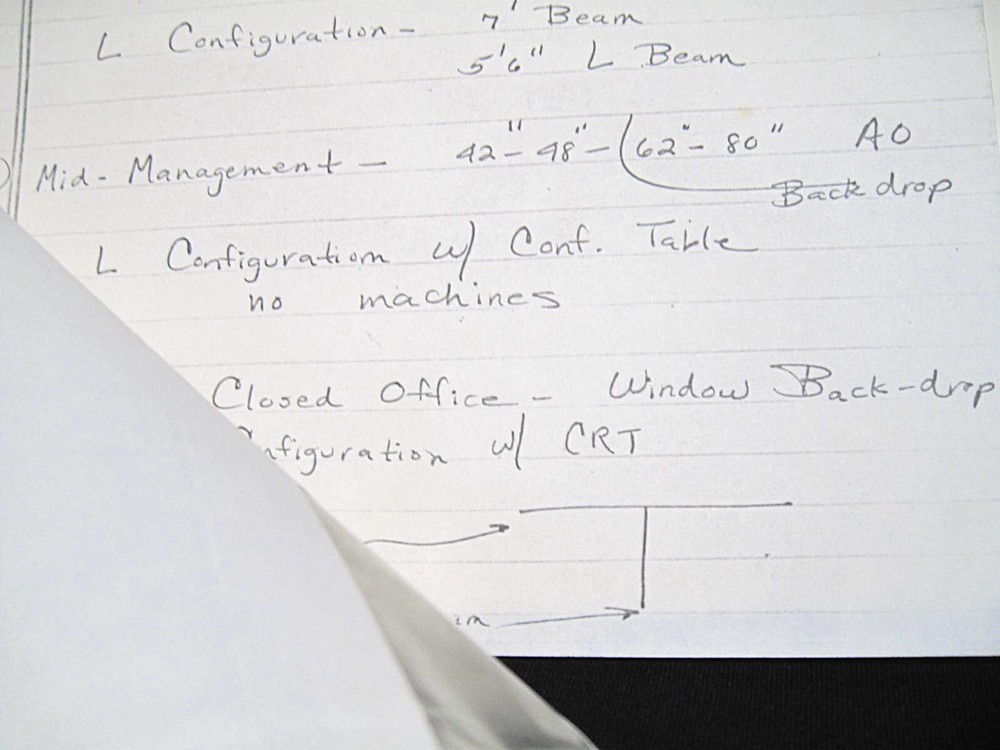 L Configuration - 7' Beam
5'6" L Beam
Mid-Management - 42"- 48"- (62"- 80" AO
Back drop
L Configuration w/ Conf. Table
no machines
Closed Office - Window Back-drop
nfiguration w/ CRT